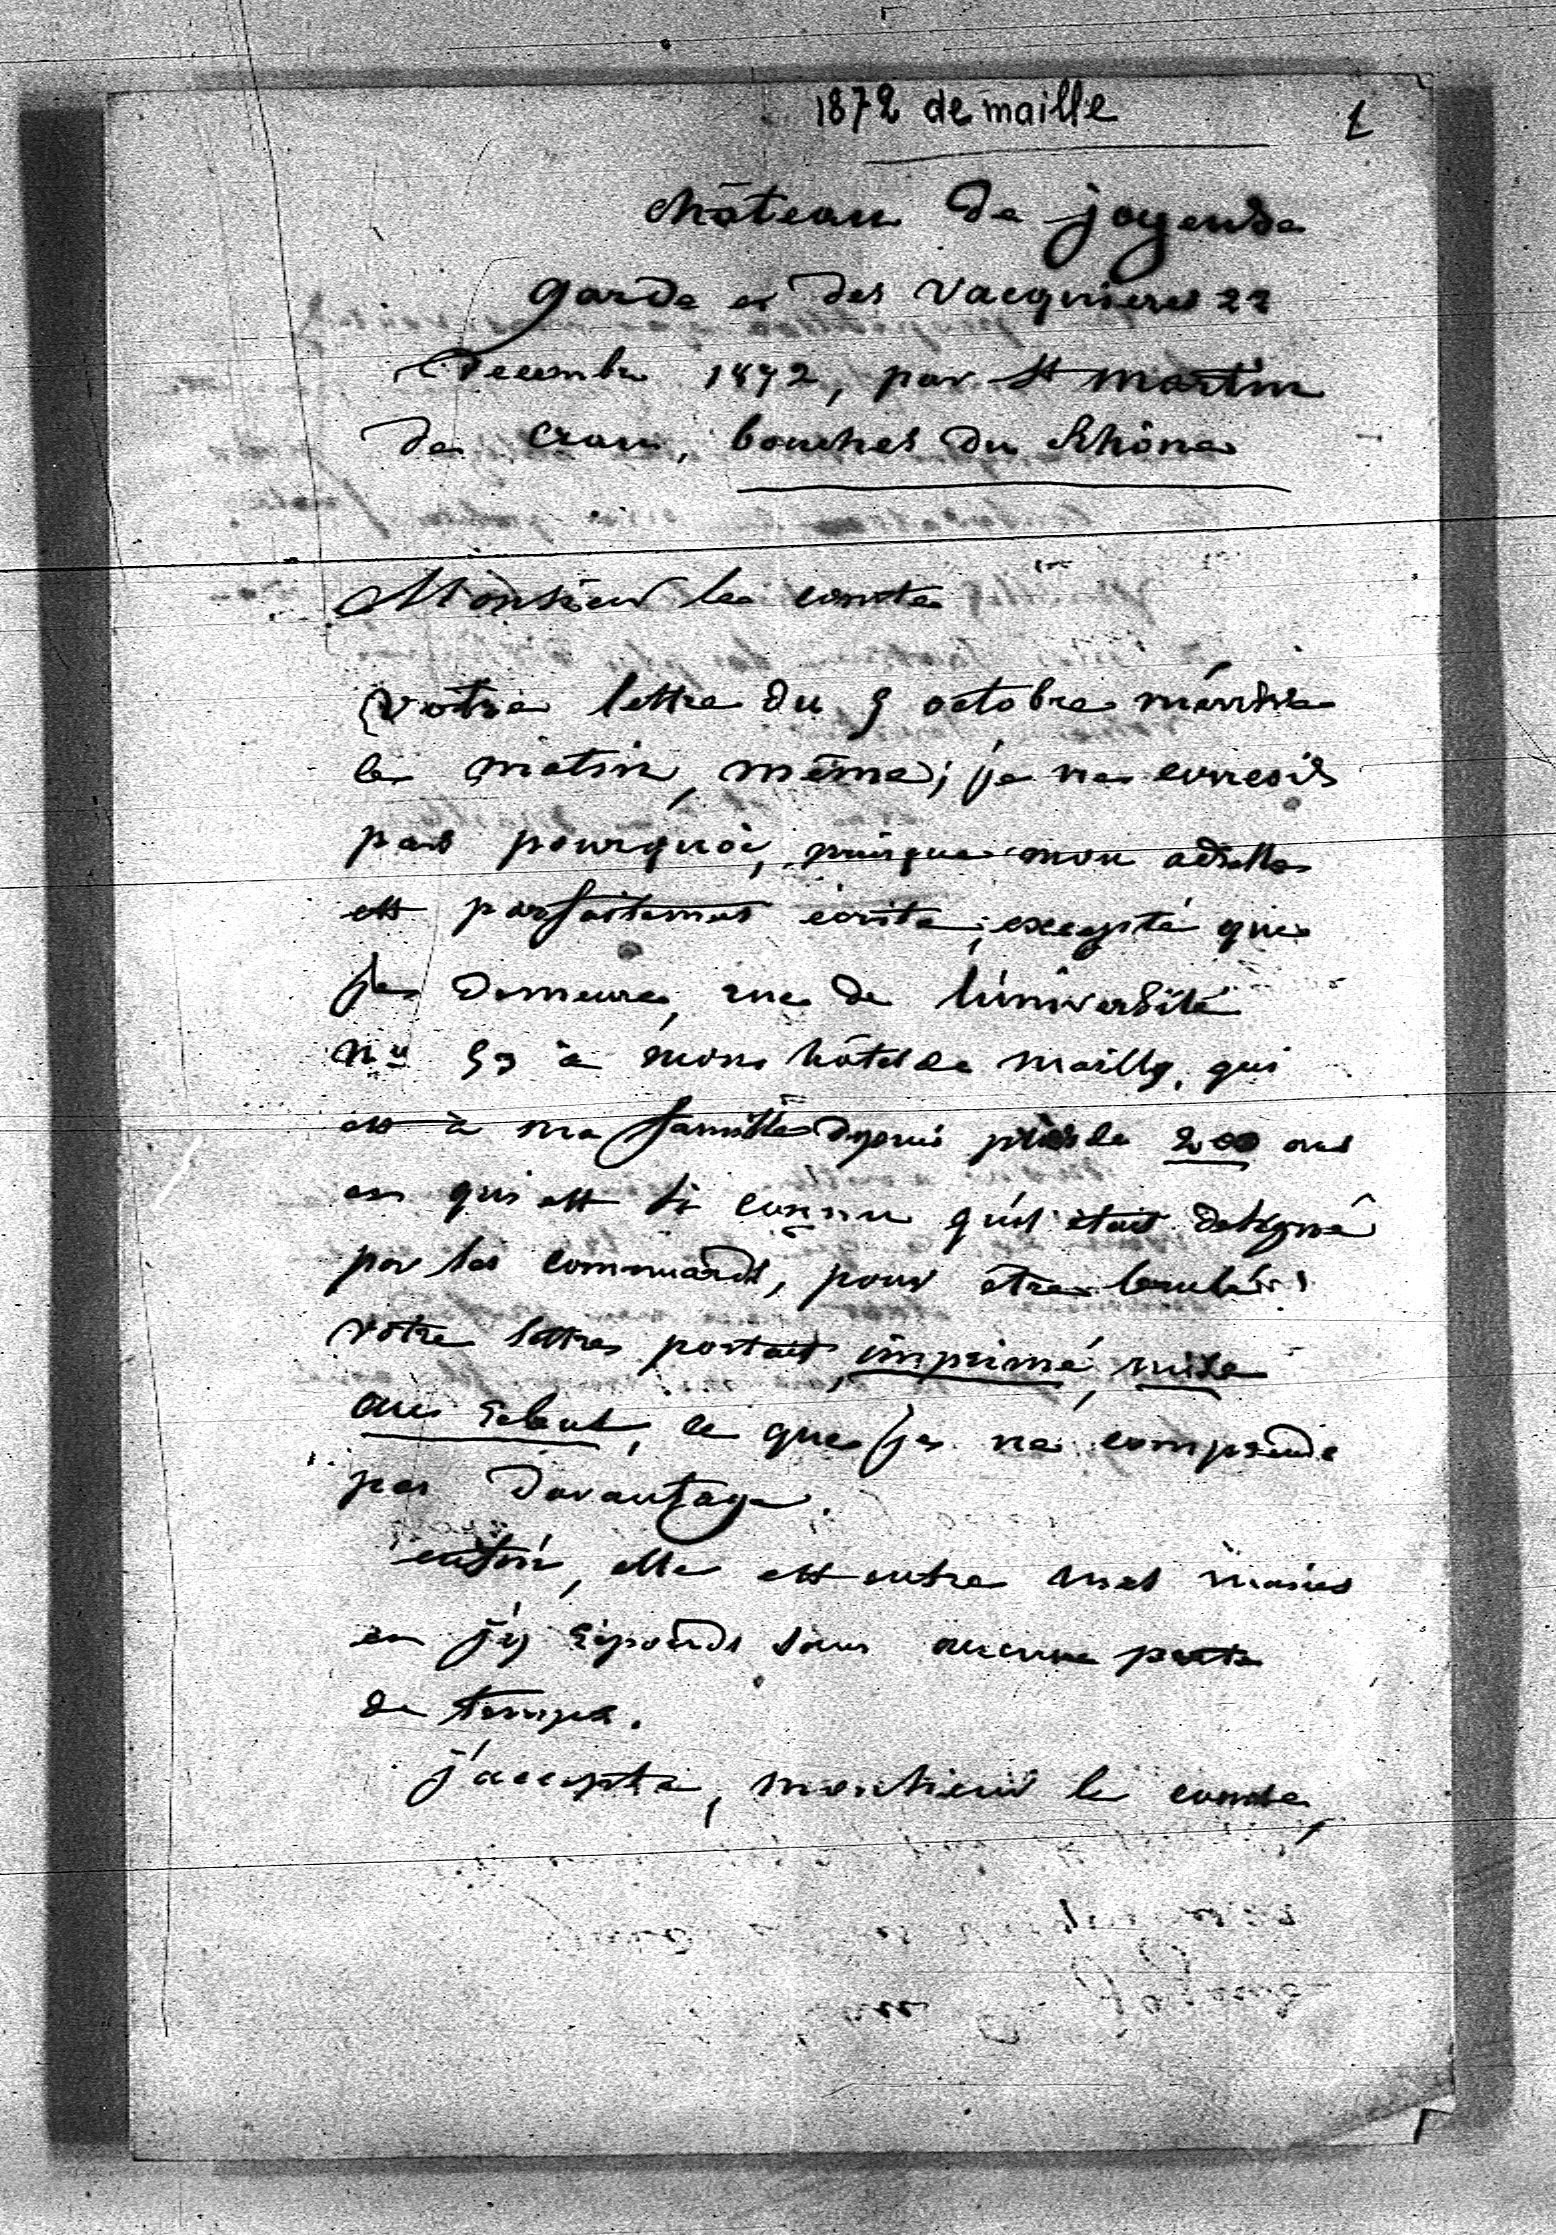 1872 de maille
1
château de joyeuse
garde et des vacquieres 22
Decembre 1872, par St martin
de crau, bouches du Rhône
Monsieur le comte
votre lettre du 9 octobre m'arrive
ce matin même; je ne concois
pas pourquoi, puisque mon adresse
est parfaitement écrite; excepté que
je demeure, rue de l'université
n° 53 à mon hôtel de mailly, qui
est à ma famille depuis près de 200 ans
et qui est si connu qu'il était designé
par les communards, pour être brulé;
votre lettre portait, imprimé, mise
au rebut, ce que je ne comprends
pas davantage.
enfin, elle est entre mes mains
et j'y réponds sans aucune perte
de temps.
j'accepte, monsieur le comte,